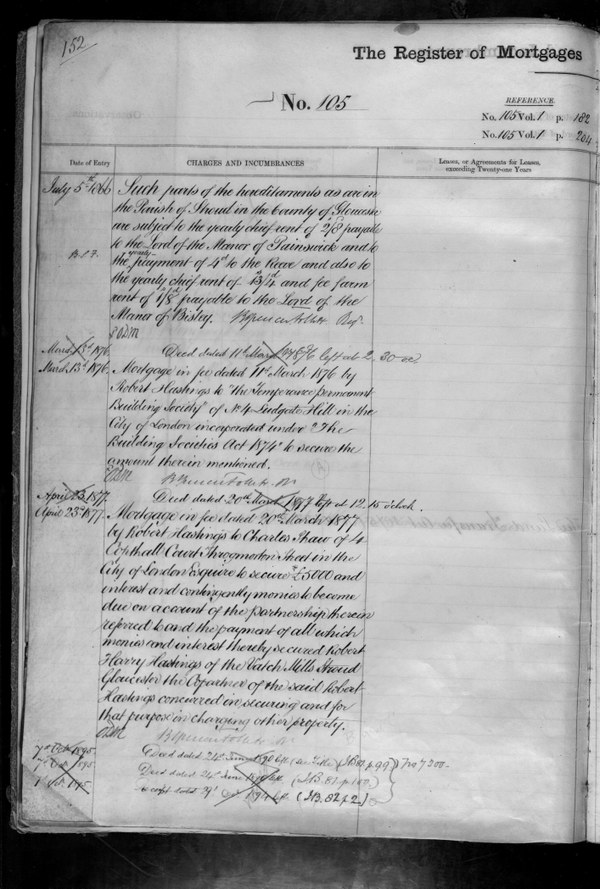 152
The Register of Mortgages
No. 105
REFERENCE.
No. 105 Vol. 1 p. 182
No. 105 Vol. 1 p. 204
Date of Entry
CHARGES AND INCUMBRANCES
Leases, or Agreements for Leases, exceeding Twenty-one Years
July 5th 1866
Such parts of the hereditaments as are in
the Parish of Stroud in the County of Gloucester
are subject to the yearly chief rent of 2/8 payable
to the Lord of the Manor of Painswick and to
the yearly payment of 4d to the Reeve and also to
the yearly chief rent of and fee farm
rent of 1/8 payable to the Lord of the
Manor of Bisley.
March 13th 1876
Deed dated 11th March 1876 left at 2.30
March 13th 1876
Mortgage in fee dated 11th March 1876 by
Robert Hastings to "the Temperance permanent
Building Society" of No 4 Ludgate Hill in the
City of London incorporated under "The
Building Societies Act 1874" to secure the
amount therein mentioned.
April 23 1877
Deed dated 20th March 1877 left at 12.15 o'clock.
April 23rd 1877
Mortgage in fee dated 20th March 1877
by Robert Hastings to Charles Shaw of 4
Copthall Court Throgmorton Street in the
City of London Esquire to secure £5000 and
interest and contingently monies to become
due on account of the partnership therein
referred to and the payment of all which
monies and interest thereby secured Robert
Harry Hastings of the Vatch Mills Stroud
Gloucester the Copartner of the said Robert
Hastings concurred in securing and for
that purpose in charging other property.
Deed dated 24th
Deed dated 24th
dated 29th